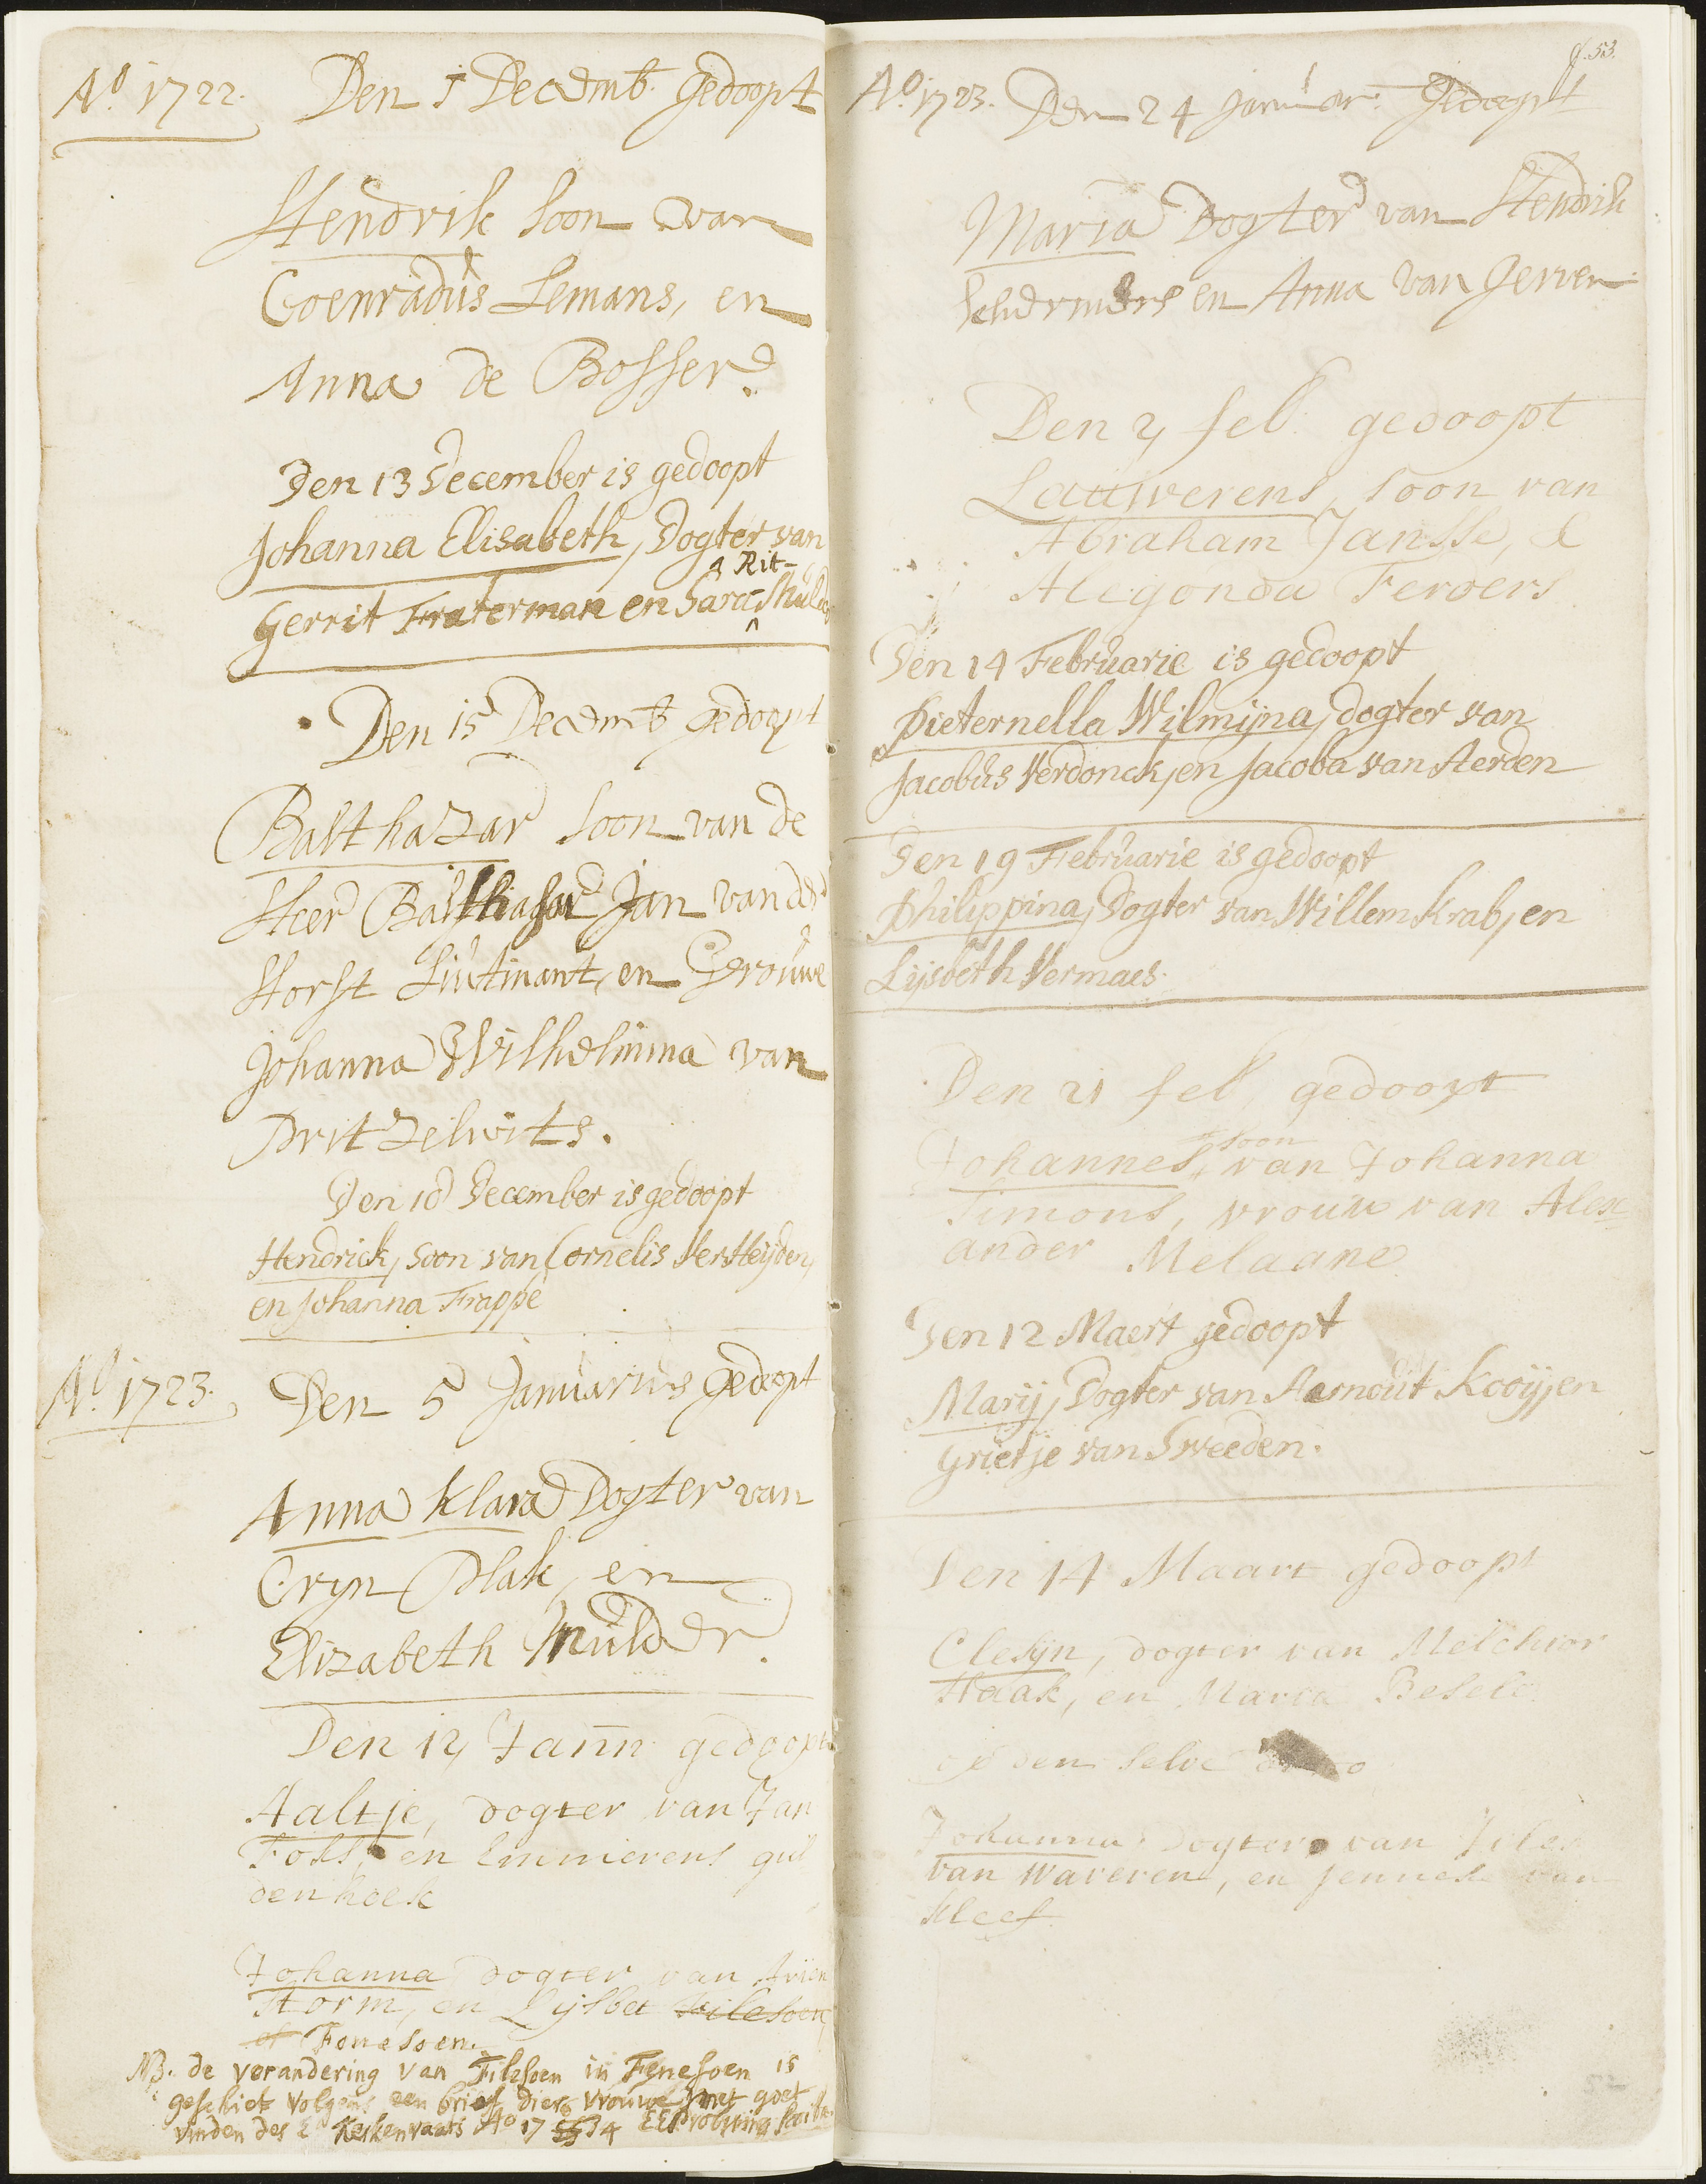 Ao 1722. Den 1 Decemb. Gedoopt
Hendrik soon van
Coenradus Lemans, en
Anna de Bosser.
Den 13 December is gedoopt
Johanna Elisabeth, Dogter van
Rit-
Gerrit Fraterman en Sara
Den 15 Decemb Gedoopt
Balthazar soon van de
Heer Balthasar Jan van der
Horst Liutinant, en Vrouwe
Johanna Wilhelmina van
Pritzelwits.
Den December is gedoopt
Hendrick, soon van Cornelis VerHeijden,
en Johanna Frappe
Ao 1723. Den 5 Januarius Gedoopt
Anna Klara Dogter van
Cryn Plak, en
Elizabeth Mulder.
Den 12 Jann gedoopt
Aaltje, dogter van Jan
en Emmerens gul
denhoek
Johanna dogter van Arien
Storm, en Lijsbet
of Fonesoen.
NB. de verandering van Filesoen in Fenesoen is
geschiet volgens een brief dier vrouwe met goet
vinden des E Kerkenraats Ao 17 34
f. 53.
Ao 1723. Den 24 Januar. Gedoopt
Maria Dogter van Hendrik
Schermers en Anna van Gerven
Den 2 feb. gedoopt
Lauwerens, soon van
Abraham Jansse, &
Alegonda Feroers
Den 14 Februarie is gedoopt
Pieternella Wilmijna, dogter van
Jacobus Verdonck, en Jacoba van Aerden
Den 19 Februarie is gedoopt
Philippina, Dogter van Willem Krab, en
Lijsbeth Vermaes.
Den 21 feb. gedoopt
soon
Johannes, van Johanna
Simons, vrouw van Alex
ander Melaane
Den 12 Maert gedoopt
Marij, Dogter van Aarnout Kooij, en
Grietje van Sweeden.
Den 14 Maart gedoopt
Clesijn, dogter van Melchior
Haak, en Maria
op den selve
Johanna dogter van
van Waveren, en Jenneke van
kleef
52